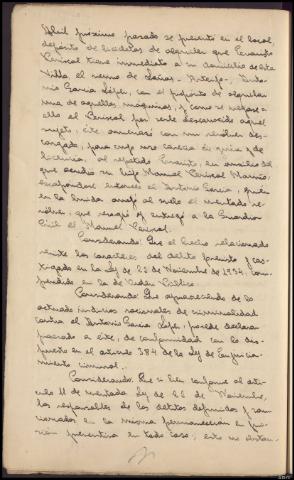 Abril próximo pasado se presentó en el local,
depósito de bicicletas de alquiler que Evaristo
Periscal tiene inmediato a su domicilio de esta
Villa el vecino de Laíños - Arteijo -, Anto-
nio García López, con el propósito de alquilar
una de aquellas máquinas, y como se negase a
ello el Periscal por serle desconocido aquel
sujeto, éste amenazó con un revólver des-
cargado, para cuyo uso carecía de guía y de
licencia, al repetido Evaristo, en auxilio del
que acudió su hijo Manuel Periscal Mariño,
escapándose entonces el Antonio García, quien
en la huida arrojó al suelo el mentado re-
vólver, que recogió y entregó a la Guardia
Civil el Manuel Periscal.
Considerando: Que el hecho relacionado
reviste los caracteres del delito previsto y cas-
tigado en la Ley de 23 de Noviembre de 1934, com-
prendido en la de Orden Público.
Considerando: Que apareciendo de lo
actuado indicios racionales de criminalidad
contra el Antonio García López, procede declarar
procesado a éste, de conformidad con lo dis-
puesto en el artículo 384 de la Ley de Enjuicia-
miento criminal.
Considerando: Que si bien conforme al artí-
culo 11 de mentada Ley de 22 de Noviembre,
los responsables de los delitos definidos y san-
cionados en la misma permanecerán en pri-
sión preventiva en todo caso, esto no obstan-